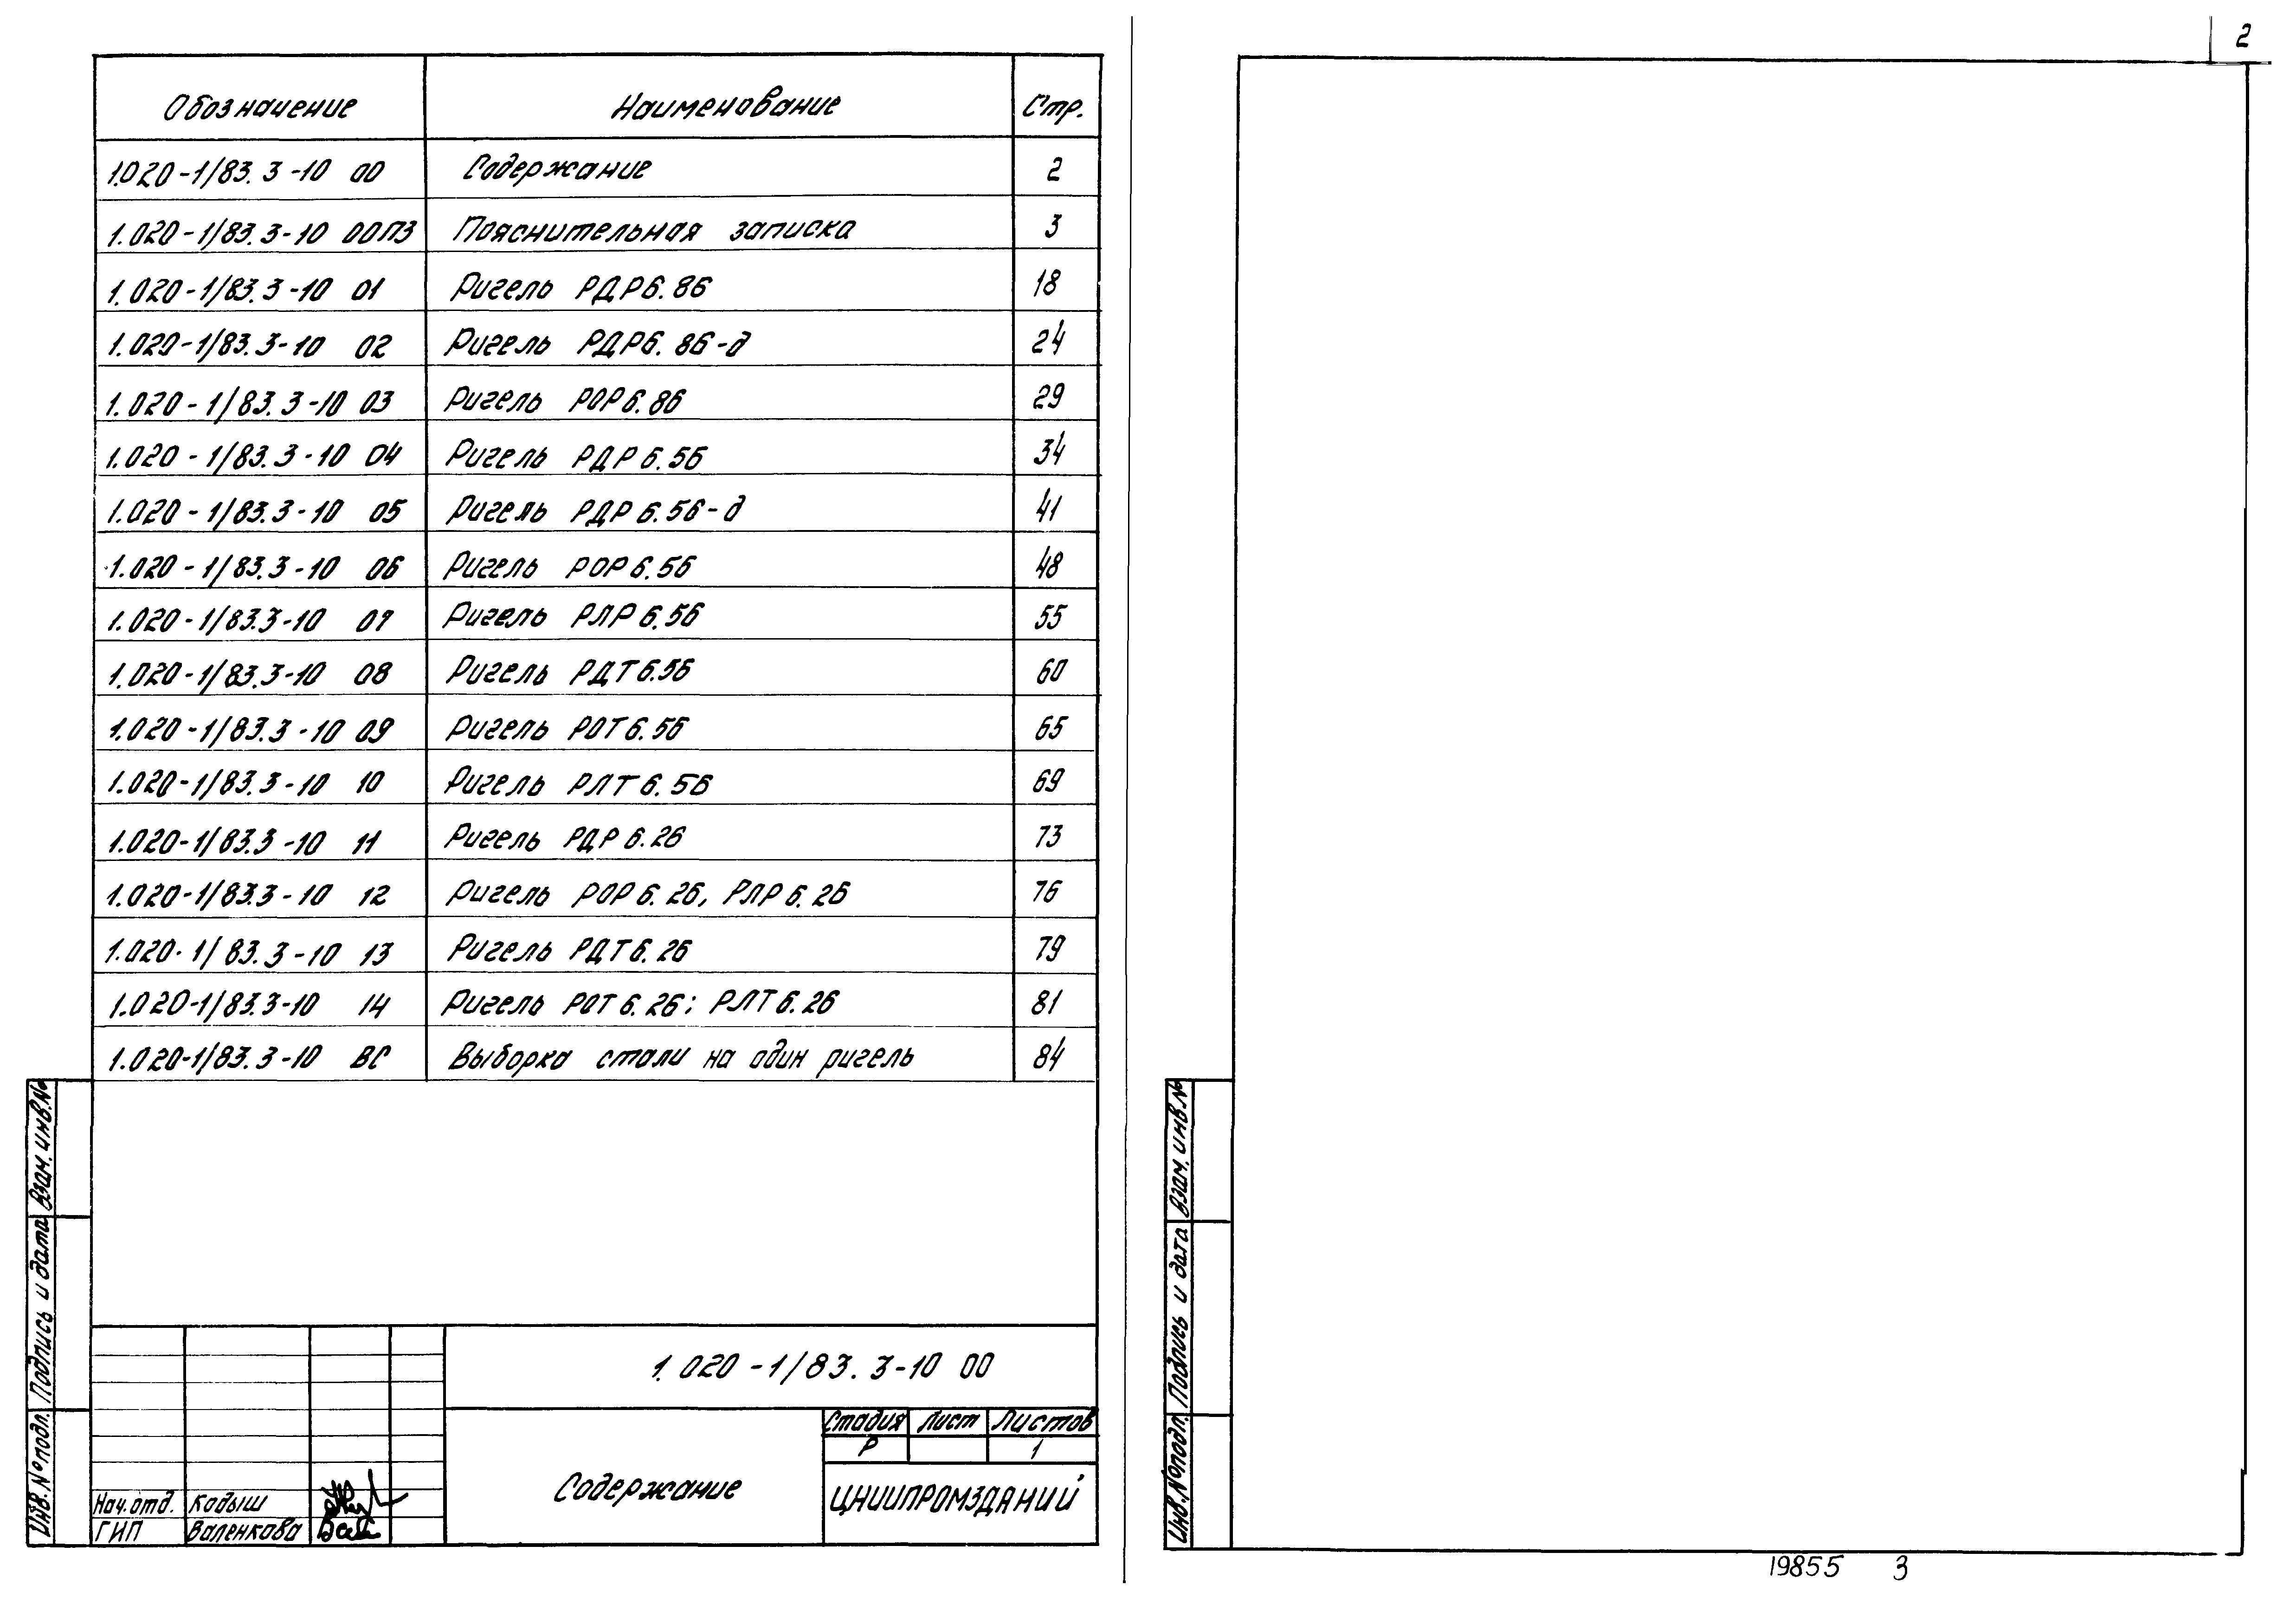 2
Обозначение Наименование Стр.
1.020-1/83.3-10 00 Содержание 2
1.020-1/83.3-10 00ПЗ Пояснительная записка 3
1.020-1/83.3-10 01 Ригель РДР6.86 18
1.020-1/83.3-10 02 Ригель РДР6.86-д 24
1.020-1/83.3-10 03 Ригель РОР6.86 29
1.020-1/83.3-10 04 Ригель РДР6.56 34
1.020-1/83.3-10 05 Ригель РДР6.56-д 41
1.020-1/83.3-10 06 Ригель РОР6.56 48
1.020-1/83.3-10 07 Ригель РЛР6.56 55
1.020-1/83.3-10 08 Ригель РДТ6.56 60
1.020-1/83.3-10 09 Ригель РОТ6.56 65
1.020-1/83.3-10 10 Ригель РЛТ6.56 69
1.020-1/83.3-10 11 Ригель РДР6.26 73
1.020-1/83.3-10 12 Ригель РОР6.26, РЛР6.26 76
1.020-1/83.3-10 13 Ригель РДТ6.26 79
1.020-1/83.3-10 14 Ригель РОТ6.26; РЛТ6.26 81
1.020-1/83.3-10 ВС Выборка стали на один ригель 84
Взам. инв.№
Подпись и дата
Инв.№подл.
1.020-1/83.3-10 00
Стадия Лист Листов
Р 1
Содержание
ЦНИИПРОМЗДАНИЙ
Нач.отд. Кодыш
ГИП Валенкова
Взам. инв.№
Подпись и дата
Инв.№подл.
19855 3